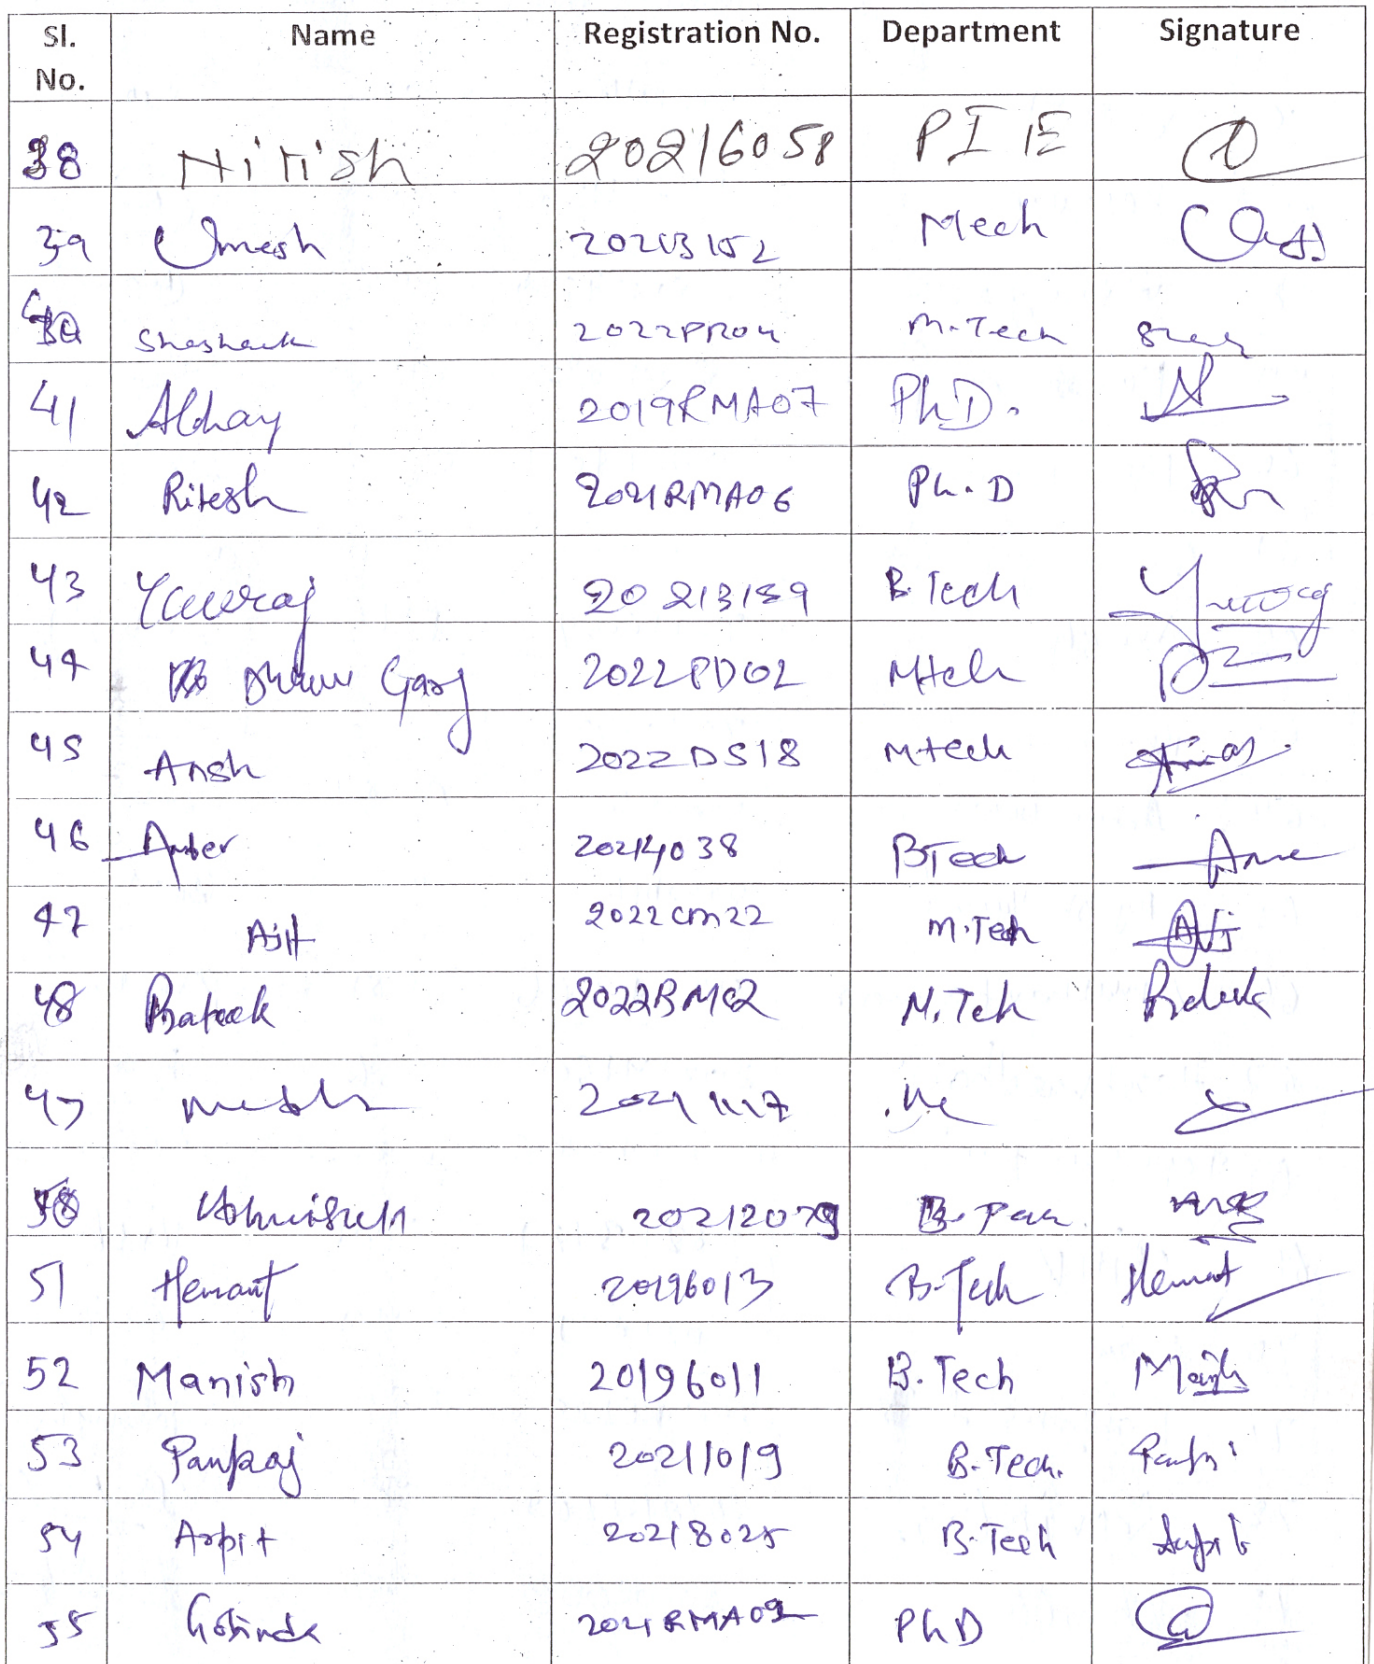 Sl. No. Name Registration No. Department Signature
38 Nitish 20216058 PIE
39 Umesh 20213152 Mech
40 Shashank 2022PR04 M.Tech
41 Abhay 2019RMA07 Ph.D.
42 Ritesh 2021RMA06 Ph.D
43 Yuvraj 20213189 B.Tech Yuvraj
44 Garg 2022PD02 Mtech
45 Ansh 2022DS18 Mtech
46 Amber 20214038 BTech
47 Ajit 2022CM22 M.Tech
48 Prateek 2022BM02 M.Tech Prateek
49
50 20212079 B.
51 Hemant 20196013 B.Tech Hemant
52 Manish 20196011 B.Tech Manish
53 Pankaj 20211019 B.Tech. Pankaj
54 Arpit 20218025 B.Tech Arpit
55 Gobinda 2021RMA02 PhD